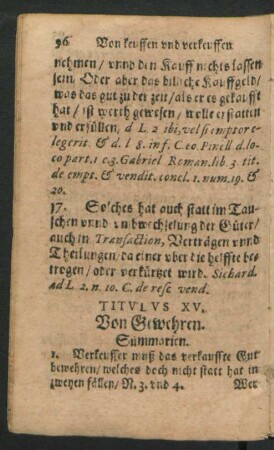 96 Von keuffen vnd verkeuffen
nehmen / vnnd den Kauff nechts lassen
sein, Oder aber das billiche Kauffgeld /
was das gut zu der zeit / als er es gekaufft
hat / ist werth gewesen / wolle erstatten
vnd erfüllen, d L. 2 ibi, vel si emptor e-
legerit & d. l 8. inf. C eo. Pinell d. lo-
co part. 1 c. 3. Gabriel Roman. lib. 3. tit.
de empt. & vendit. concl. 1. num. 19. &
20.
17. Solches hat auch statt im Tau-
schen vnnd vmbwechselung der Güter /
auch in Transaction, Verträgen vnnd
Theilungen / da einer vber die helffte be-
trogen / oder verkürtzt wird. Sichard.
ad L 2. n. 10. C. de resc vend.
TITVLVS XV.
Von Gewehren.
Summarien.
1. Verkeuffer muß das verkauffte Gut
bewehren / welches doch nicht statt hat in
zweyen fällen / N. 3. vnd 4. Wer